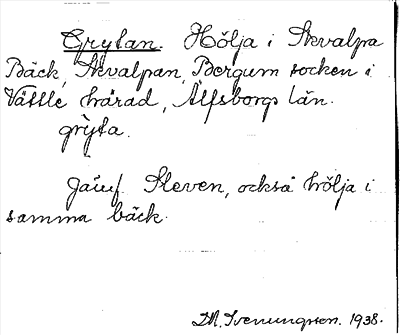 Grytan. Hölja i Skvalpa
Bäck, Skvalpan, Bergum socken i
Vättle härad, Älfsborgs län.
gryta.
Jämf. Sleven, också hölja i
samma bäck.
D.M. Svenungsson. 1938.